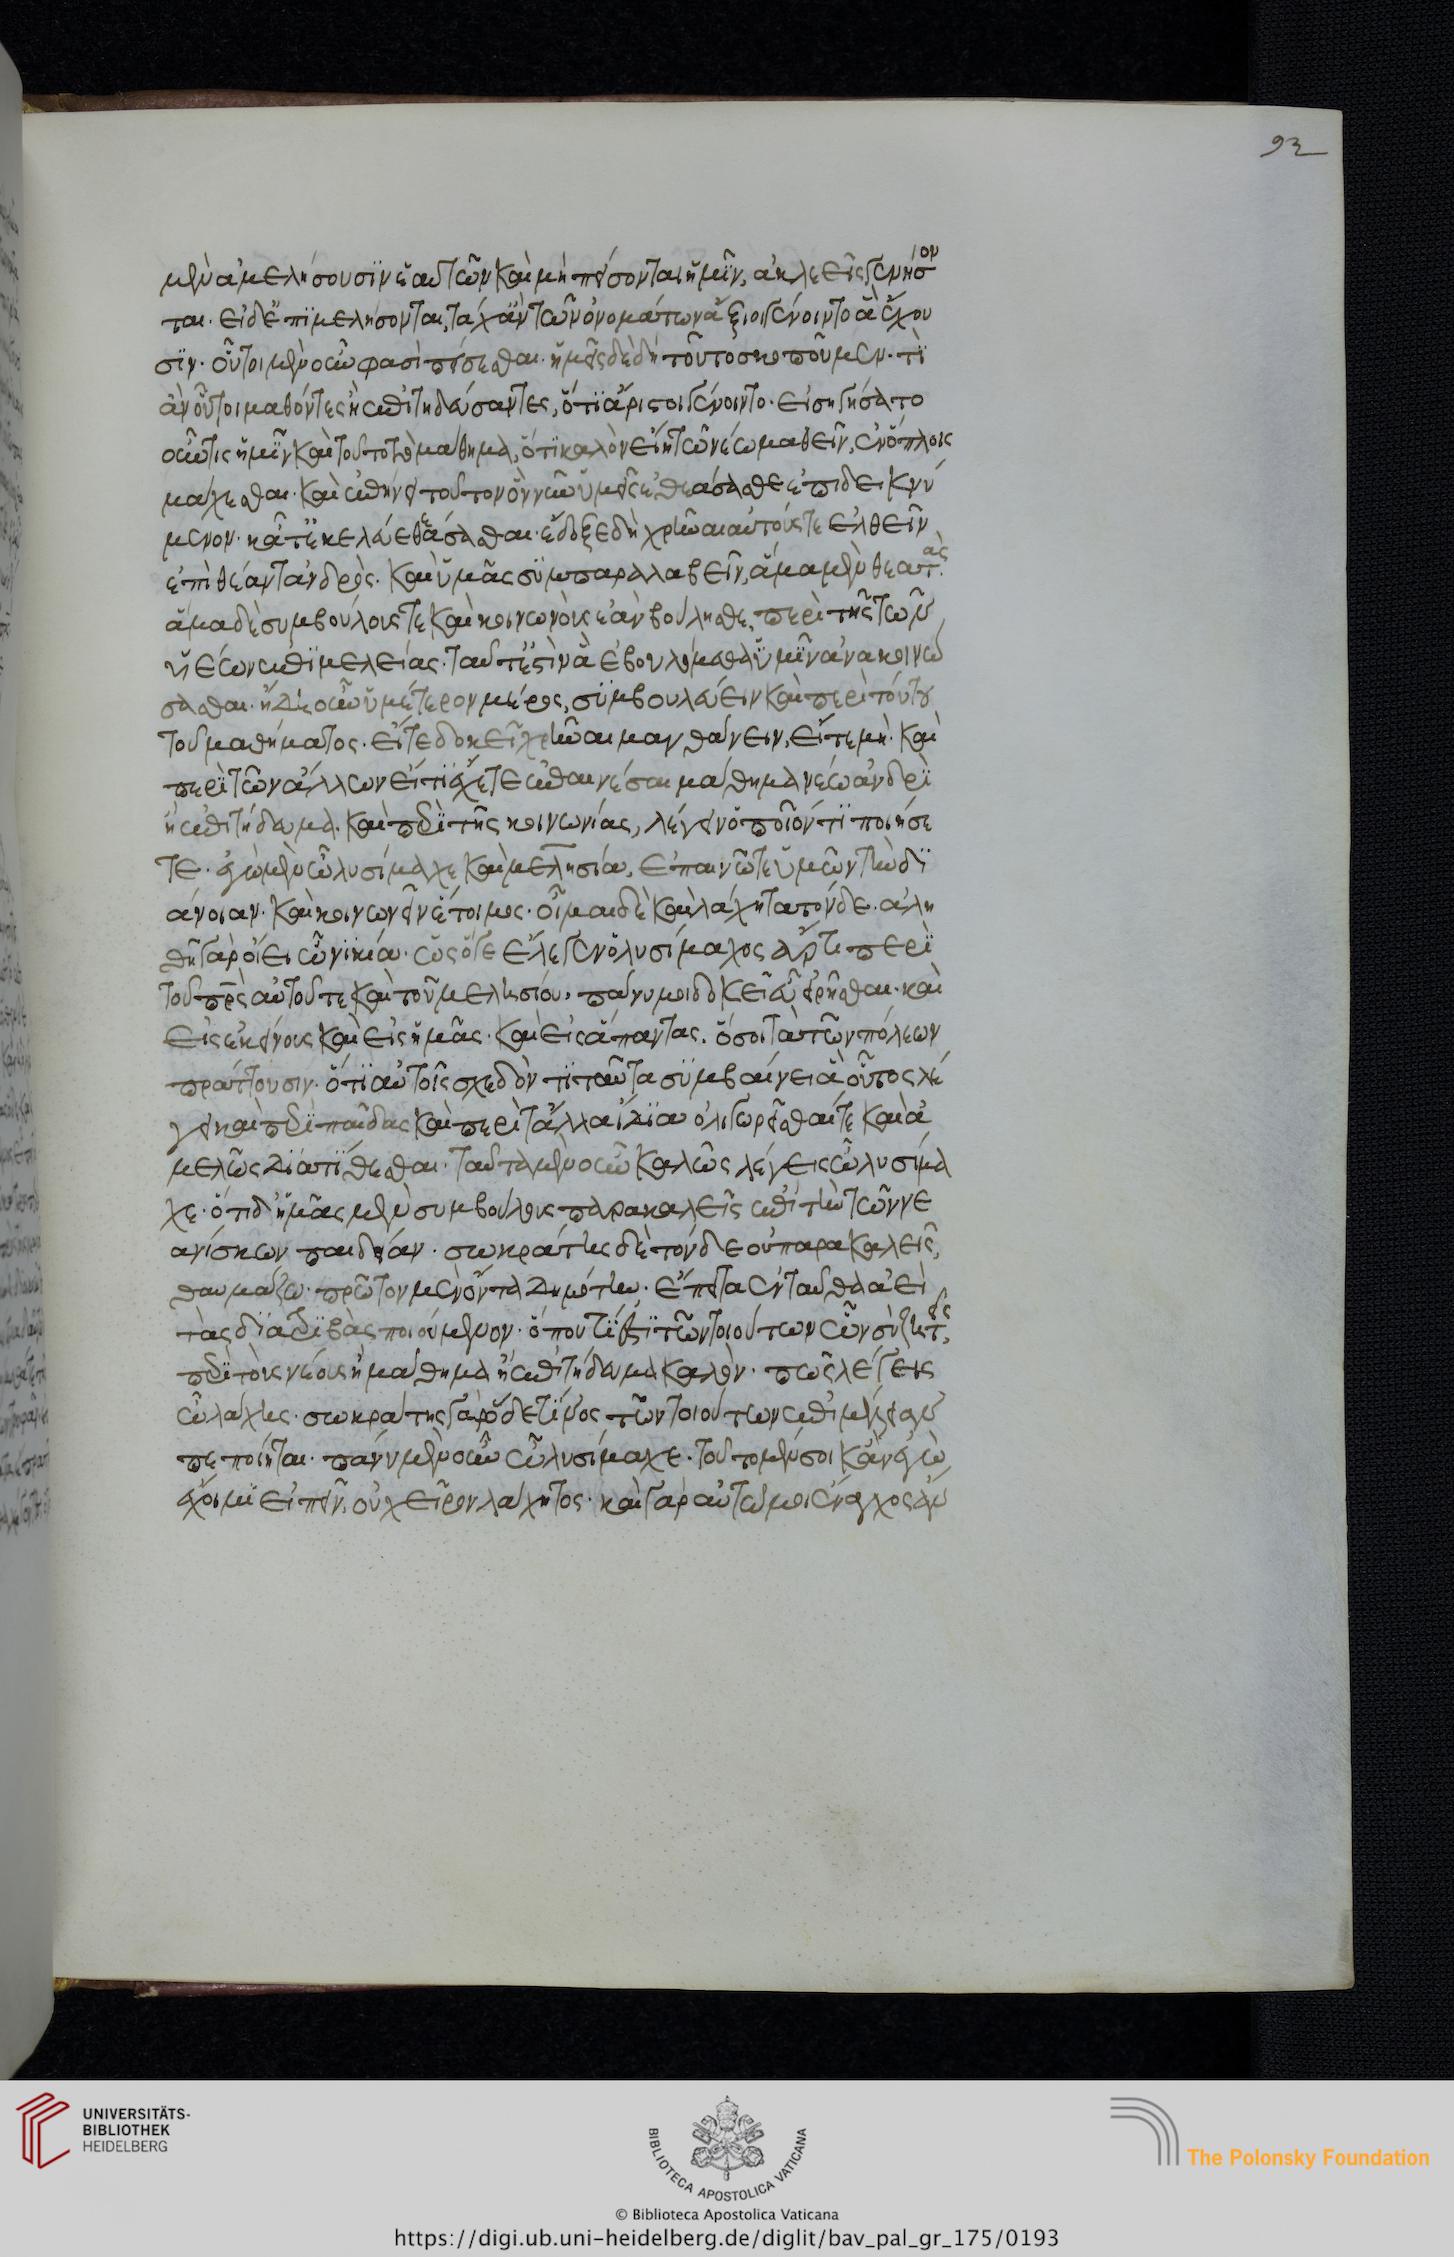 μὲν ἀμελήσουσϊν ἑαυτῶν καὶ μὴ πείσονται ἡμῖν, ἀκλεεῖς γενήσον
ται· εἰ δ' ἐπϊμελήσονται, τάχ' ἂν τῶν ὀνομάτων ἄξιοι γένοιντο ἃ ἔχου
σϊν· οὗτοι μὲν οὖν φασὶ πείσεσθαι· ἡμεῖς δὲ δὴ τοῦτο σκοποῦμεν· τὶ
ἂν οὗτοι μαθόντες ἢ ἐπιτηδεύσαντες, ὅτι ἄριστοι γένοιντο· εἰσηγήσατο
οὖν τις ἡμῖν καὶ τοῦτο τὸ μάθημα, ὅτι καλὸν εἴη τῶ νέω μαθεῖν, ἐν ὅπλοις
μάχεσθαι· καὶ ἐπήνει τοῦτον ὃν νῦν ὑμεῖς ἐθεάσασθε ἐπιδεικνύ
μενον· κᾆτ' ἐκέλευε θεάσασθαι· ἔδοξε δὴ χρῆναι αὐτούς τε ἐλθεῖν
ἐπὶ θέαν τἀνδρὸς· καὶ ὑμᾶς συμπαραλαβεῖν, ἅμα μὲν θεατὰς·
ἅμα δὲ συμβούλους τε καὶ κοινωνοὺς ἐὰν βούλησθε, περὶ τῆς τῶν
ὑέων ἐπϊμελείας· ταῦτ' ἐστὶν ἃ ἐβουλόμεθα ὑμῖν ἀνακοινώ
σασθαι· ἤδη οὖν ὑμέτερον μέρος, συμβουλεύειν καὶ περὶ τούτου
τοῦ μαθήματος· εἴτε δοκεῖ χρῆναι μανθάνειν, εἴτε μή· καὶ
περὶ τῶν ἄλλων εἴ τι ἔχετε ἐπαινέσαι μάθημα νέω ἀνδρὶ
ἢ ἐπιτήδευμα· καὶ περὶ τῆς κοινωνίας, λέγειν ὁποῖόν τι ποιήσε
τε· ἐγὼ μὲν ὦ λυσίμαχε καὶ μελησία, ἐπαινῶ τε ὑμῶν τὴν δϊ
άνοιαν· καὶ κοινωνεῖν ἕτοιμος· οἶμαι δὲ καὶ λάχητα τόνδε· ἀλη
θῆ γὰρ οἴει ὦ νικία· ὥς ὅγε ἔλεγεν ὁ λυσίμαχος ἄρτι περὶ
τοῦ πατρὸς αὐτοῦ τε καὶ τοῦ μελησίου, πάνυ μοι δοκεῖ εὖ εἰρῆσθαι· καὶ
εἰς ἐκείνους καὶ εἰς ἡμᾶς· καὶ εἰς ἅπαντας. ὅσοι τὰ τῶν πόλεων
πράττουσιν· ὅτι αὐτοῖς σχεδὸν τι ταῦτα συμβαίνει ἃ οὗτος λέ
γει καὶ περὶ παῖδας καὶ περὶ τἄλλα ἴδϊα ὀλιγωρεῖσθαί τε καὶ ἀ
μελῶς δϊατίθεσθαι· ταῦτα μὲν οὖν καλῶς λέγεις ὦ λυσίμα
χε· ὅτι δ' ἡμᾶς μὲν συμβούλους παρακαλεῖς ἐπὶ τὴν τῶν νε
ανίσκων παιδείαν· σωκράτης δὲ τόνδε οὐ παρακαλεῖς,
θαυμάζω· πρῶτον μὲν ὄντα δημότην· ἔπειτα ἐνταῦθα ἀεὶ
τὰς δϊατριβὰς ποιούμενον· ὅπου τί ἐστι τῶν τοιούτων ὧν σὺ ζητεῖς,
περὶ τοὺς νέους ἢ μάθημα ἢ ἐπιτήδευμα καλὸν· πῶς λέγεις
ὦ λάχης· σωκράτης γὰρ ὅδε τινὸς τῶν τοιούτων ἐπιμέλειαν
πεποίηται· πάνυ μὲν οὖν ὦ λυσίμαχε· τοῦτο μέν σοι κἂν ἐγὼ
ἔχοιμι εἰπεῖν, οὐ χεῖρον λάχητος· καὶ γὰρ αὐτῶ μοι ἔναγχος ἄν
92
UNIVERSITÄTS-
BIBLIOTHEK
HEIDELBERG
BIBLIOTECA APOSTOLICA VATICANA
The Polonsky Foundation
© Biblioteca Apostolica Vaticana
https://digi.ub.uni-heidelberg.de/diglit/bav_pal_gr_175/0193